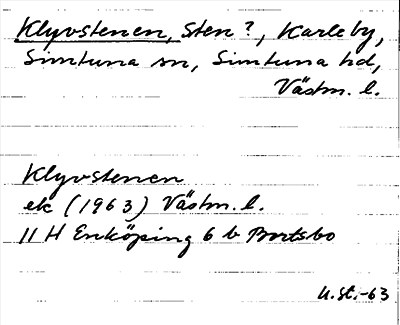 Klyvstenen, Sten?, Karleby,
Simtuna sn, Simtuna hd,
Västm. l.
Klyvstenen
ek (1963) Västm. l.
11 H Enköping 6 b Brotsbo
U.St.-63